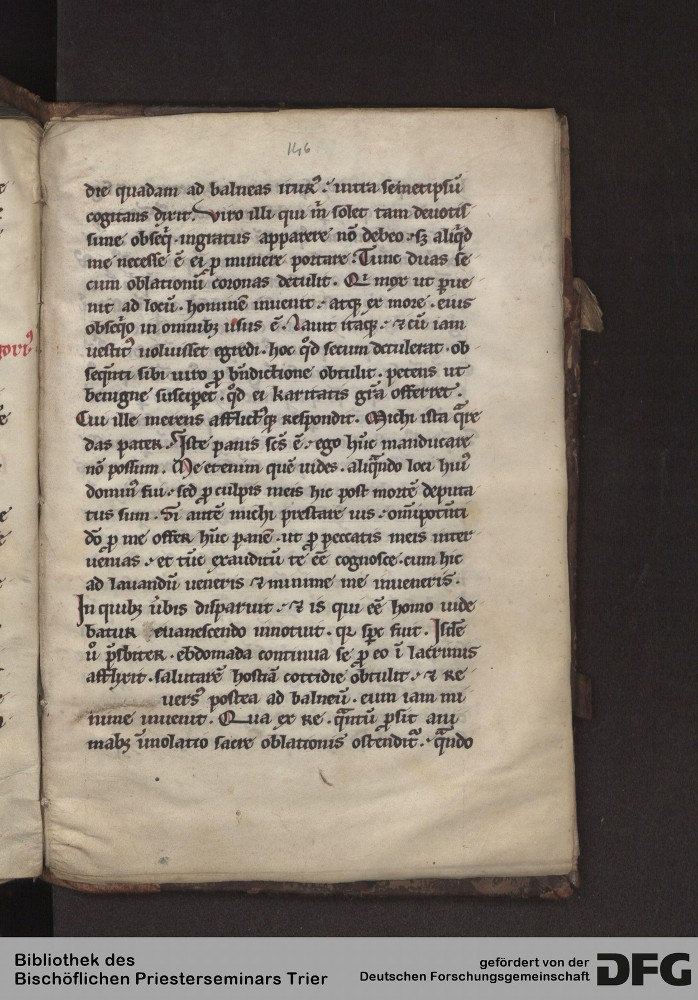 146
die quadam ad balneas iturꝰ. intra semetipsū
cogitans dixit. Viro illi qui m̄ solet tam deuotis
sime obseq̇. ingratus apparere nō debeo. sꝫ aliq̄d
me necesse ē ei ꝓ munere portare. Tunc duas se
cum oblationū coronas detulit. Qi mox ut ꝑue
nit ad locū. hominē inuenit. atqꝫ ex more. eius
obseq̇o in omnibꝫ usus ē. Lauit itaqꝫ. ⁊ cū iam
uestitꝰ uoluisset egredi. hoc q̄d secum detulerat. ob
seq̄nti sibi uiro ꝓ bn̄dictione obtulit. petens ut
benigne susciperet. q̄d ei karitatis gr̄a offerret.
Cui ille merens afflictꝰqꝫ respondit. Michi ista q̄re
das pater. Iste panis sc̄s ē. ego hūc manducare
nō possum. Me etenim quē uides. aliq̄ndo loci huiꝰ
dominꝰ fui. sed ꝓ culpis meis hic post mortē deputa
tus sum. Si autē michi prestare uis. om̄ipotēti
dō ꝓ me offer hūc panē. ut ꝓ peccatis meis inter
uenias. et tūc exauditū te eē cognosce. cum hic
ad lauandū ueneris ⁊ minime me inueneris.
In quibꝫ ūbis disparuit. ⁊ is qui eē homo uide
batur euanescendo innotuit. qr sp̄c fuit.
ů p̄sbiter. ebdomada continua se ꝓ eo ī lacrimis
afflixit. salutarē hostiā cottidie obtulit. ⁊ re
uersꝰ postea ad balneū. eum iam mi
nime inuenit. Qua ex re. q̄ntū ꝓsit ani
mabꝫ īmolatio sacre oblationis ostenditᷣ. q̄ndo
goriꝰ
Bibliothek des
Bischöflichen Priesterseminars Trier
gefördert von der
Deutschen Forschungsgemeinschaft
DFG